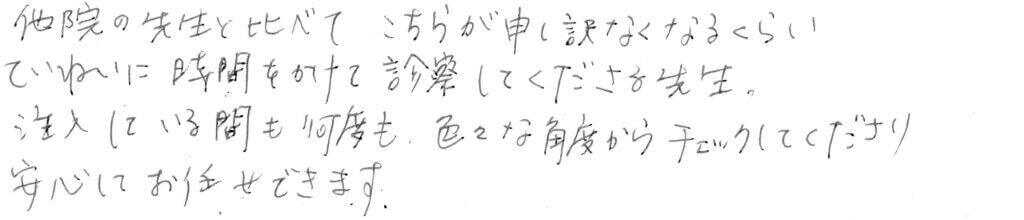 他院の先生と比べて こちらが申し訳なくなるくらい
ていねいに時間をかけて診察してくださる先生。
注入している間も何度も、色々な角度からチェックしてくださり
安心してお任せできます。